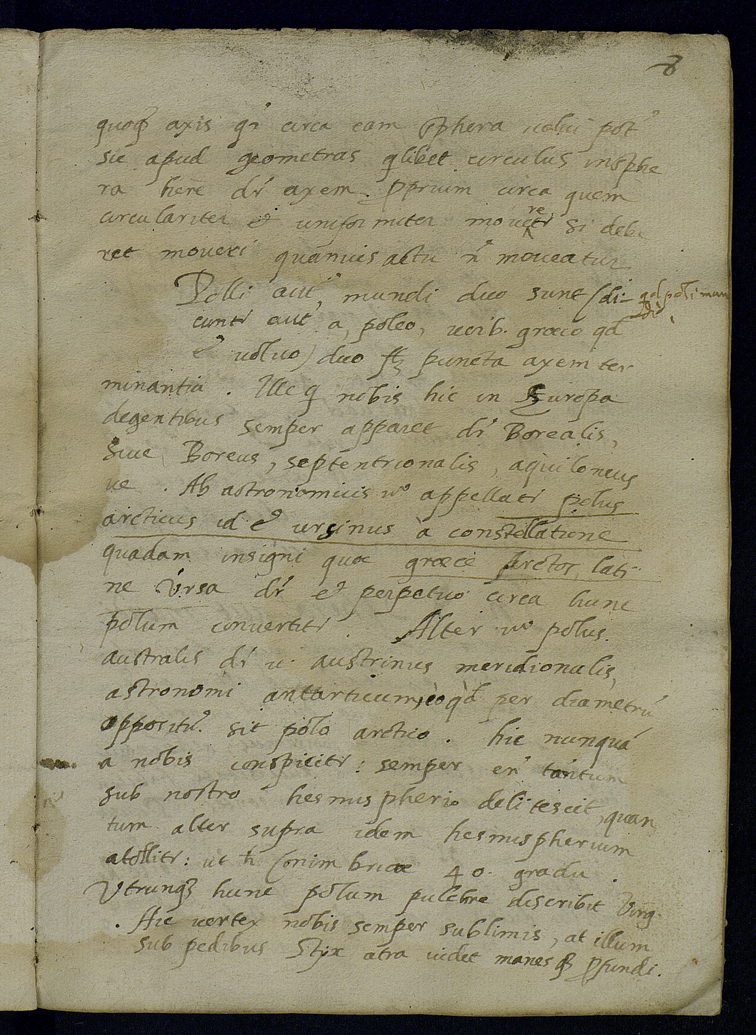 8
quoq axis qi circa eam sphera volui pot
sic apud geometras qlibet circulus insphe
ra here dr axem pprium circa quem
circulariter et uniformiter movetr re si debe
ret moveri quamvis actu n moveatur
Polli aut mundi duo sunt (di-
qd poli mun
di
cuntr aut a, poleo, verb. græco qd
e volvo) duo puncta axem ter
minantia. Ille q nobis hic in Europa
degentibus semper apparet dr Borealis,
sive Boreus, septentrionalis, aquiloneus
ve. Ab astronomicis vo appellatr polus
arcticus id e ursinus à constellatione
quadam insigni quæ græce Arctos, lati
ne Ursa dr et perpetuo circa hunc
polum convertitr. Alter vo polus.
australis dr v. austrinus meridionalis,
astronomi antarticum, eò qd per diametrũ
oppositũ. sit polo arctico. hic nunquã
a nobis conspicitr: semper en tantum
sub nostro hesmispherio delitescit, quan
tum alter supra idem hesmispherium
atollitr: ut h Conimbricæ 40. gradu.
Utrunq hunc polum pulchre describit Virg.
. Hic vertex nobis semper sublimis, at illum
sub pedibus Styx atra videt manes q pfundi.